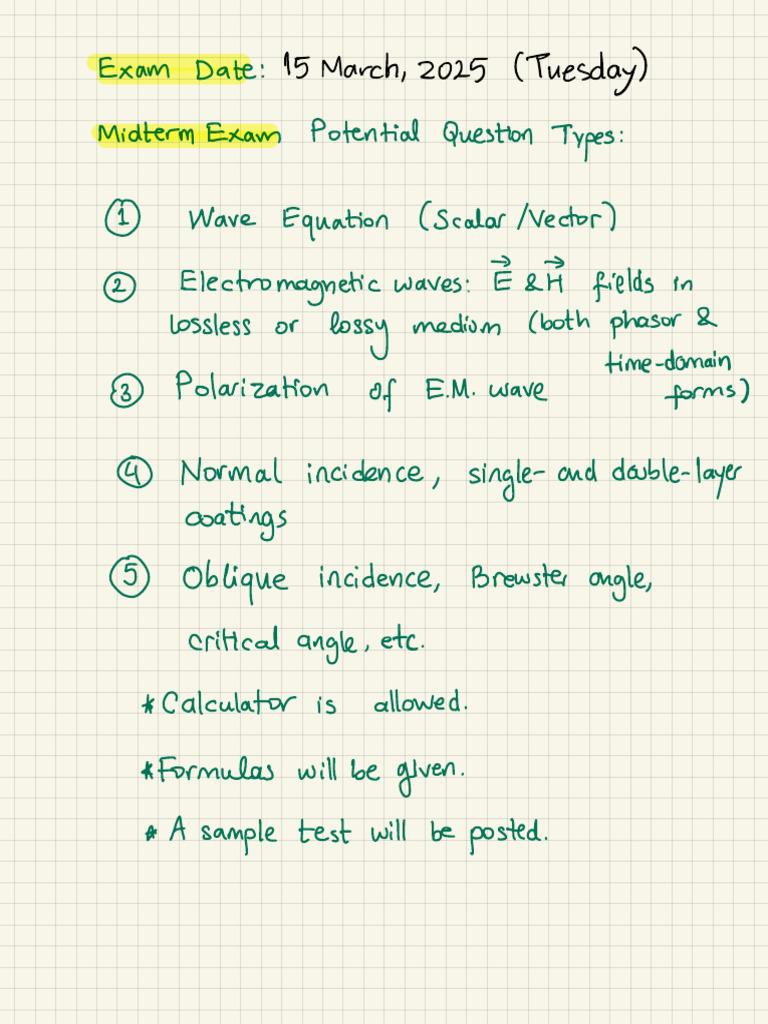 Exam Date: 15 March, 2025 (Tuesday)
Midterm Exam Potential Question Types:
① Wave Equation (Scalar/Vector)
② Electromagnetic waves: E⃗ & H⃗ fields in
lossless or lossy medium (both phasor &
time-domain
forms)
③ Polarization of E.M. wave
④ Normal incidence, single- and double-layer
coatings
⑤ Oblique incidence, Brewster angle,
critical angle, etc.
* Calculator is allowed.
* Formulas will be given.
* A sample test will be posted.